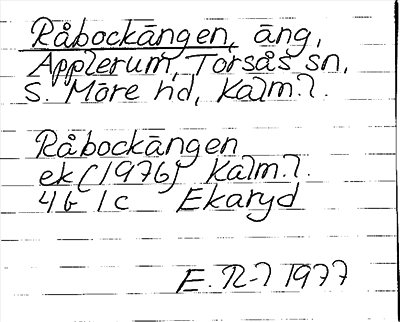 Råbockängen, äng,
Applerum, Torsås sn,
S. Möre hd, Kalm.l.
Råbockängen
ek (1976) Kalm.l.
4G 1c Ekaryd
E. R-l 1977